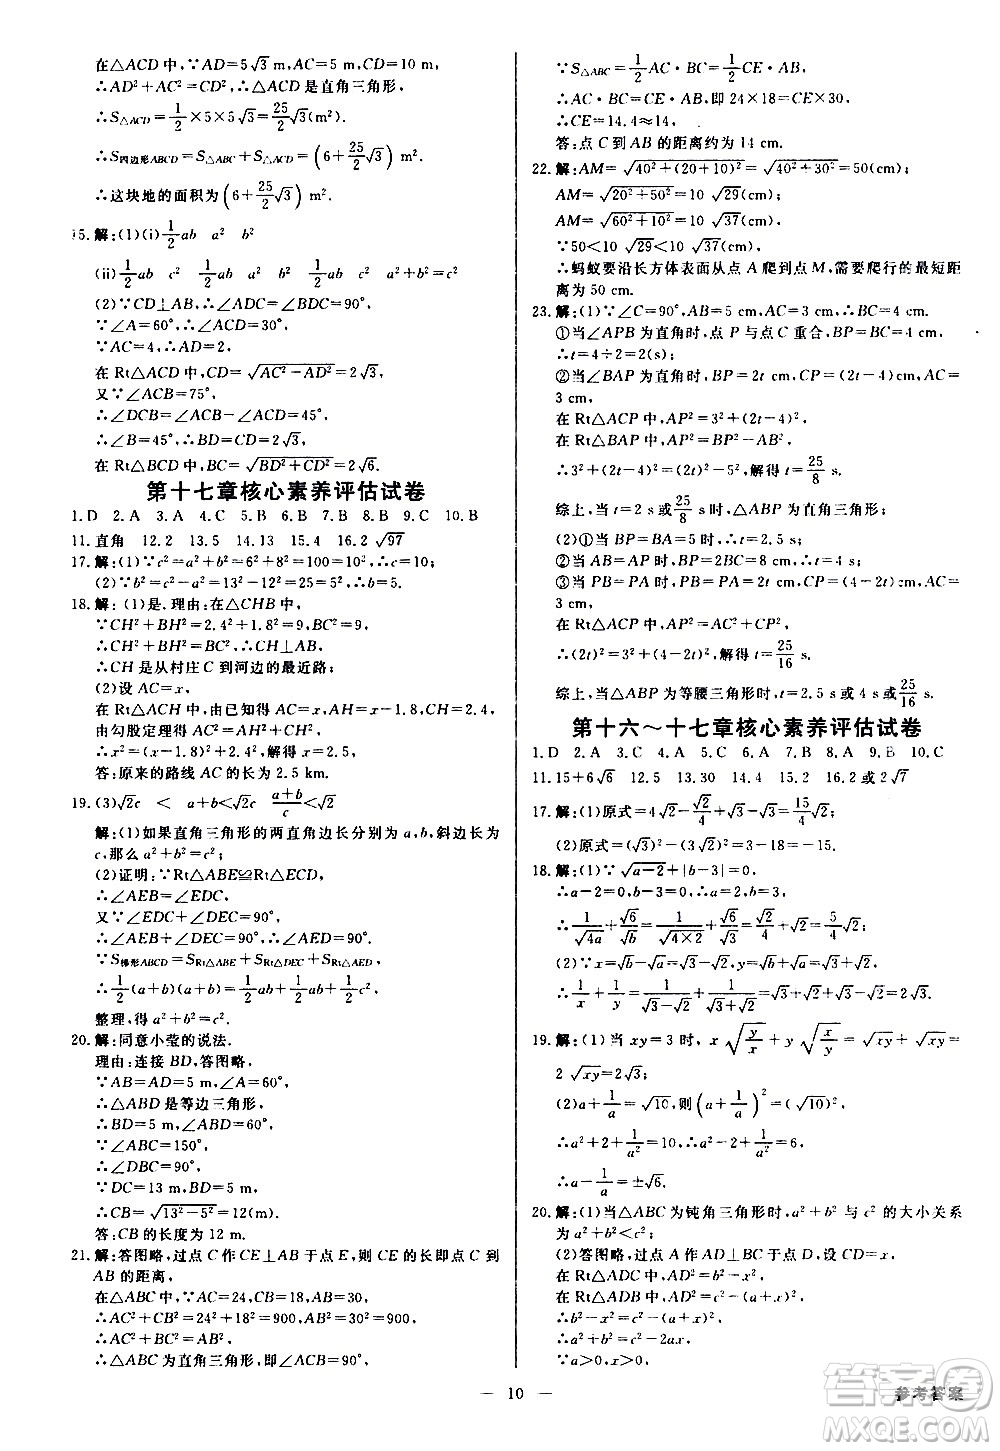 在△ACD 中,∵AD=5√3 m,AC=5 m,CD=10 m,
∴AD²+AC²=CD²,∴△ACD 是直角三角形,
∴S△ACD=1/2×5×5√3=25/2√3(m²).
∴S四边形ABCD=S△ABC+S△ACD=(6+25/2√3) m².
∴这块地的面积为(6+25/2√3) m².
15.解:(1)(i)1/2ab a² b²
(ii)1/2ab c² 1/2ab
(2)∵CD⊥AB,∴∠ADC=∠BDC=90°,
∵∠A=60°,∴∠ACD=30°,
∵AC=4,∴AD=2,
在 Rt△ACD 中,CD=√(AC²-AD²)=2√3,
又∵∠ACB=75°,
∴∠DCB=∠ACB-∠ACD=45°,
∴∠B=45°,∴BD=CD=2√3,
在 Rt△BCD 中,BC=√(BD²+CD²)=2√6.
第十七章核心素养评估试卷
1.D 2.A 3.A 4.C 5.B 6.B 7.B 8.B 9.C 10.B
11.直角 12.2 13.5 14.13 15.4 16.2√97
17.解:(1)∵c²=a²+b²=6²+8²=100=10²,∴c=10;
(2)∵b²=c²-a²=13²-12²=25=5²,∴b=5.
18.解:(1)是.理由:在△CHB 中,
∵CH²+BH²=2.4²+1.8²=9,BC²=9,
∴CH²+BH²=BC²,∴CH⊥AB,
∴CH 是从村庄 C 到河边的最近路;
(2)设 AC=x,
在 Rt△ACH 中,由已知得 AC=x,AH=x-1.8,CH=2.4,
由勾股定理得 AC²=AH²+CH²,
∴x²=(x-1.8)²+2.4²,解得 x=2.5.
答:原来的路线 AC 的长为 2.5 km.
19.(3)√2c < a+b<√2c (a+b)/c<√2
解:(1)如果直角三角形的两直角边长分别为 a,b,斜边长为
c,那么 a²+b²=c²;
(2)证明:∵Rt△ABE≌Rt△ECD,
∴∠AEB=∠EDC,
又∵∠EDC+∠DEC=90°,
∴∠AEB+∠DEC=90°,∴∠AED=90°.
∵S梯形ABCD=SRt△ABE+SRt△DEC+SRt△AED,
∴1/2(a+b)(a+b)=1/2ab+1/2ab+1/2c²,
整理,得 a²+b²=c².
20.解:同意小莹的说法.
理由:连接 BD,答图略,
∵AB=AD=5 m,∠A=60°,
∴△ABD 是等边三角形,
∴BD=5 m,∠ABD=60°,
∵∠ABC=150°,
∴∠DBC=90°,
∵DC=13 m,BD=5 m,
∴CB=√(13²-5²)=12(m),
答:CB 的长度为 12 m.
21.解:答图略,过点 C 作 CE⊥AB 于点 E,则 CE 的长即点 C 到
AB 的距离,
在△ABC 中,∵AC=24,CB=18,AB=30,
∴AC²+CB²=24²+18²=900,AB²=30²=900,
∴AC²+BC²=AB²,
∴△ABC 为直角三角形,即∠ACB=90°,
∵S△ABC=1/2AC·BC=1/2CE·AB,
∴AC·BC=CE·AB,即 24×18=CE×30,
∴CE=14.4≈14,
答:点 C 到 AB 的距离约为 14 cm.
22.解:AM=√(40²+(20+10)²)=√(40²+30²)=50(cm),
AM=√(20²+50²)=10√29(cm)
AM=√(60²+10²)=10√37(cm)
∵50<10√29<10√37(cm)
∴蚂蚁要沿长方体表面从点 A 爬到点 M,需要爬行的最短距
离为 50 cm.
23.解:(1)∵∠C=90°,AB=5 cm,AC=3 cm,∴BC=4 cm.
①当∠APB 为直角时,点 P 与点 C 重合,BP=BC=4 cm,
∴t=4÷2=2(s);
②当∠BAP 为直角时,BP=2t cm,CP=(2t-4)cm,AC=
3 cm,
在 Rt△ACP 中,AP²=3²+(2t-4)²,
在 Rt△BAP 中,AP²=BP²-AB²,
∴3²+(2t-4)²=(2t)²-5²,解得 t=25/8 s.
综上,当 t=2 s或25/8 s 时,△ABP 为直角三角形;
(2)①当 BP=BA=5 时,∴t=2.5 s,
②当 AB=AP 时,BP=2BC=8 cm,∴t=4 s,
③当 PB=PA 时,PB=PA=2t cm,CP=(4-2t)cm,AC=3 cm,
在 Rt△ACP 中,AP²=AC²+CP²,
∴(2t)²=3²+(4-2t)²,解得 t=25/16 s.
综上,当△ABP 为等腰三角形时,t=2.5 s或 4 s或25/16 s.
第十六~十七章核心素养评估试卷
1.D 2.A 3.C 4.A 5.C 6.A 7.B 8.A 9.B 10.C
11.15+6√6 12.5 13.30 14.4 15.2 16.2 或 2√7
17.解:(1)原式=4√2-√2/4+√3-√3=15/4√2;
(2)原式=(√3)²-(3√2)²=3-18=-15.
18.解:(1)∵√(a-2)+|b-3|=0,
∴a-2=0,b-3=0,∴a=2,b=3,
∴1/√(4a)+√6/√b=1/√(4×2)+√6/√3=√2/4+√2=5/4√2;
(2)∵x=√b-√a=√3-√2,y=√b+√a=√3+√2,
∴1/x+1/y=1/(√3-√2)+1/(√3+√2)=√3+√2+√3-√2=2√3.
19.解:(1)当 xy=3 时,x√(y/x)+y√(x/y)=√xy+√xy=
2√xy=2√3;
(2)a+1/a=√10,则(a+1/a)²=(√10)²,
∴a²+2+1/a²=10,∴a²-2+1/a²=6,
∴a-1/a=±√6.
20.解:(1)当△ABC 为钝角三角形时,a²+b² 与 c² 的大小关系
为:a²+b²<c²;
(2)答图略,过点 A 作 AD⊥BC 于点 D,设 CD=x,
在 Rt△ADC 中,AD²=b²-x²,
在 Rt△ADB 中,AD²=c²-(a-x)²,
∴b²-x²=c²-(a-x)²,
∴a²+b²=c²+2ax,
∵a>0,x>0,
— 10 —
参考答案
答案圈
MXQE.COM